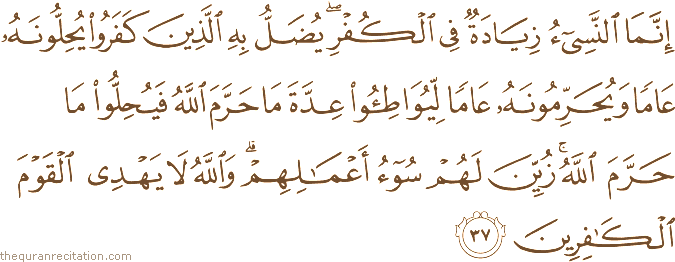 إِنَّمَا ٱلنَّسِىٓءُ زِيَادَةٌ فِى ٱلْكُفْرِ ۖ يُضَلُّ بِهِ ٱلَّذِينَ كَفَرُوا۟ يُحِلُّونَهُۥ
عَامًا وَيُحَرِّمُونَهُۥ عَامًا لِّيُوَاطِـُٔوا۟ عِدَّةَ مَا حَرَّمَ ٱللَّهُ فَيُحِلُّوا۟ مَا
حَرَّمَ ٱللَّهُ ۚ زُيِّنَ لَهُمْ سُوٓءُ أَعْمَـٰلِهِمْ ۗ وَٱللَّهُ لَا يَهْدِى ٱلْقَوْمَ
ٱلْكَـٰفِرِينَ ٣٧
thequranrecitation.com